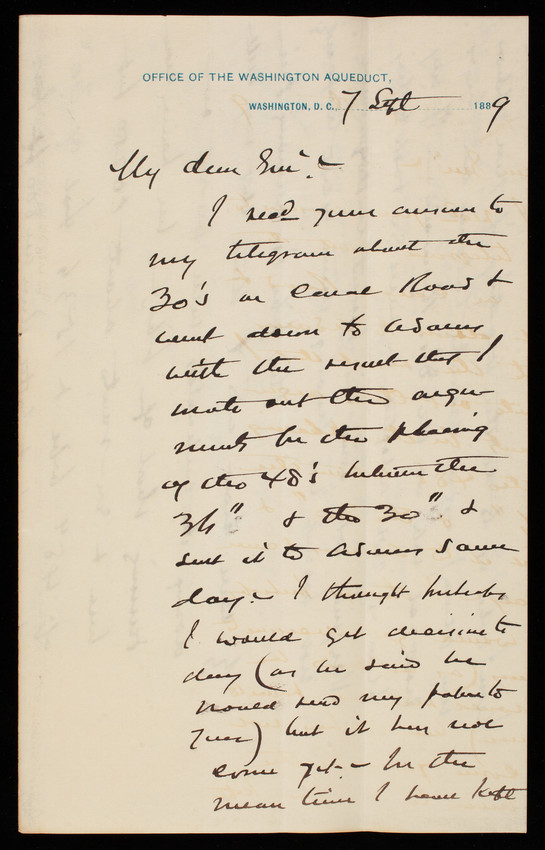 OFFICE OF THE WASHINGTON AQUEDUCT,
WASHINGTON, D. C., 7 Sept 1889
My dear Gen'l.-
I recd your answer to
my telegram about the
30's on Canal Road &
went down to Adams
with the result that I
wrote out the argu-
ments for the placing
of the 48's between the
36" & the 30" &
sent it to Adams same
day.- I thought perhaps
I would get decision to
day (as he said he
would send my paper to
you) but it has not
come yet.- In the
mean time I have kept